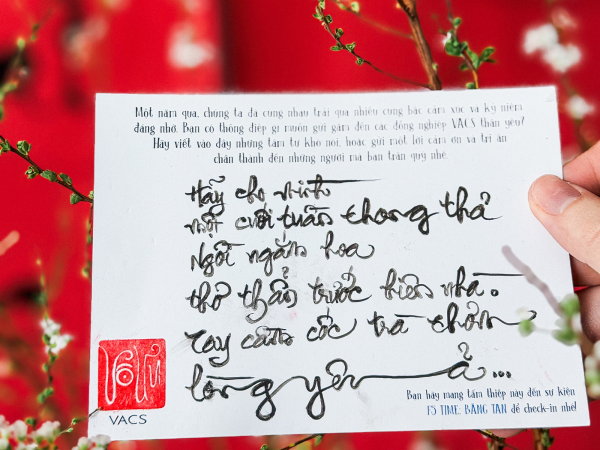 Một năm qua, chúng ta đã cùng nhau trải qua nhiều cung bậc cảm xúc và kỷ niệm
đáng nhớ. Bạn có thông điệp gì muốn gửi gắm đến các đồng nghiệp VACS thân yêu?
Hãy viết vào đây những tâm tư khó nói, hoặc gửi một lời cảm ơn và tri ân
chân thành đến những người mà bạn trân quý nhé.
Hãy cho mình
một cuối tuần thong thả
Ngồi ngắm hoa
thơ thẩn trước hiên nhà.
Tay cầm cốc trà thơm
lòng yên ả...
VACS
Bạn hãy mang tấm thiệp này đến sự kiện
F5 TIME: BẢNG TAN để check-in nhé!